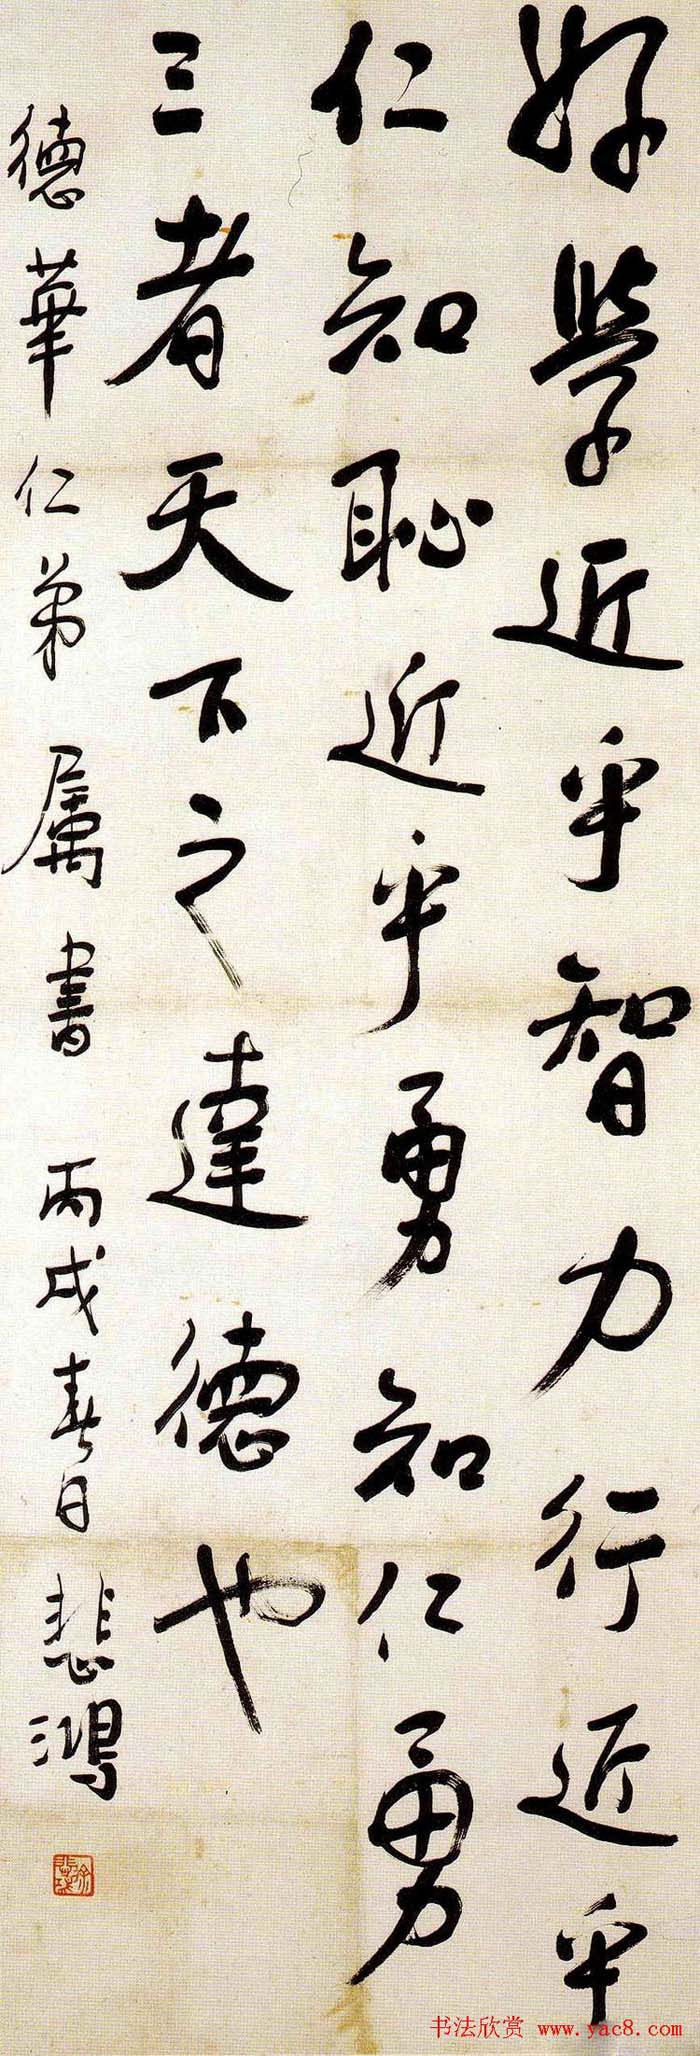 好學近乎智力行近乎
仁知恥近乎勇知仁勇
三者天下之達德也
德華仁弟屬書 丙戌春日 悲鴻
徐悲鴻
书法欣赏 www.yac8.com